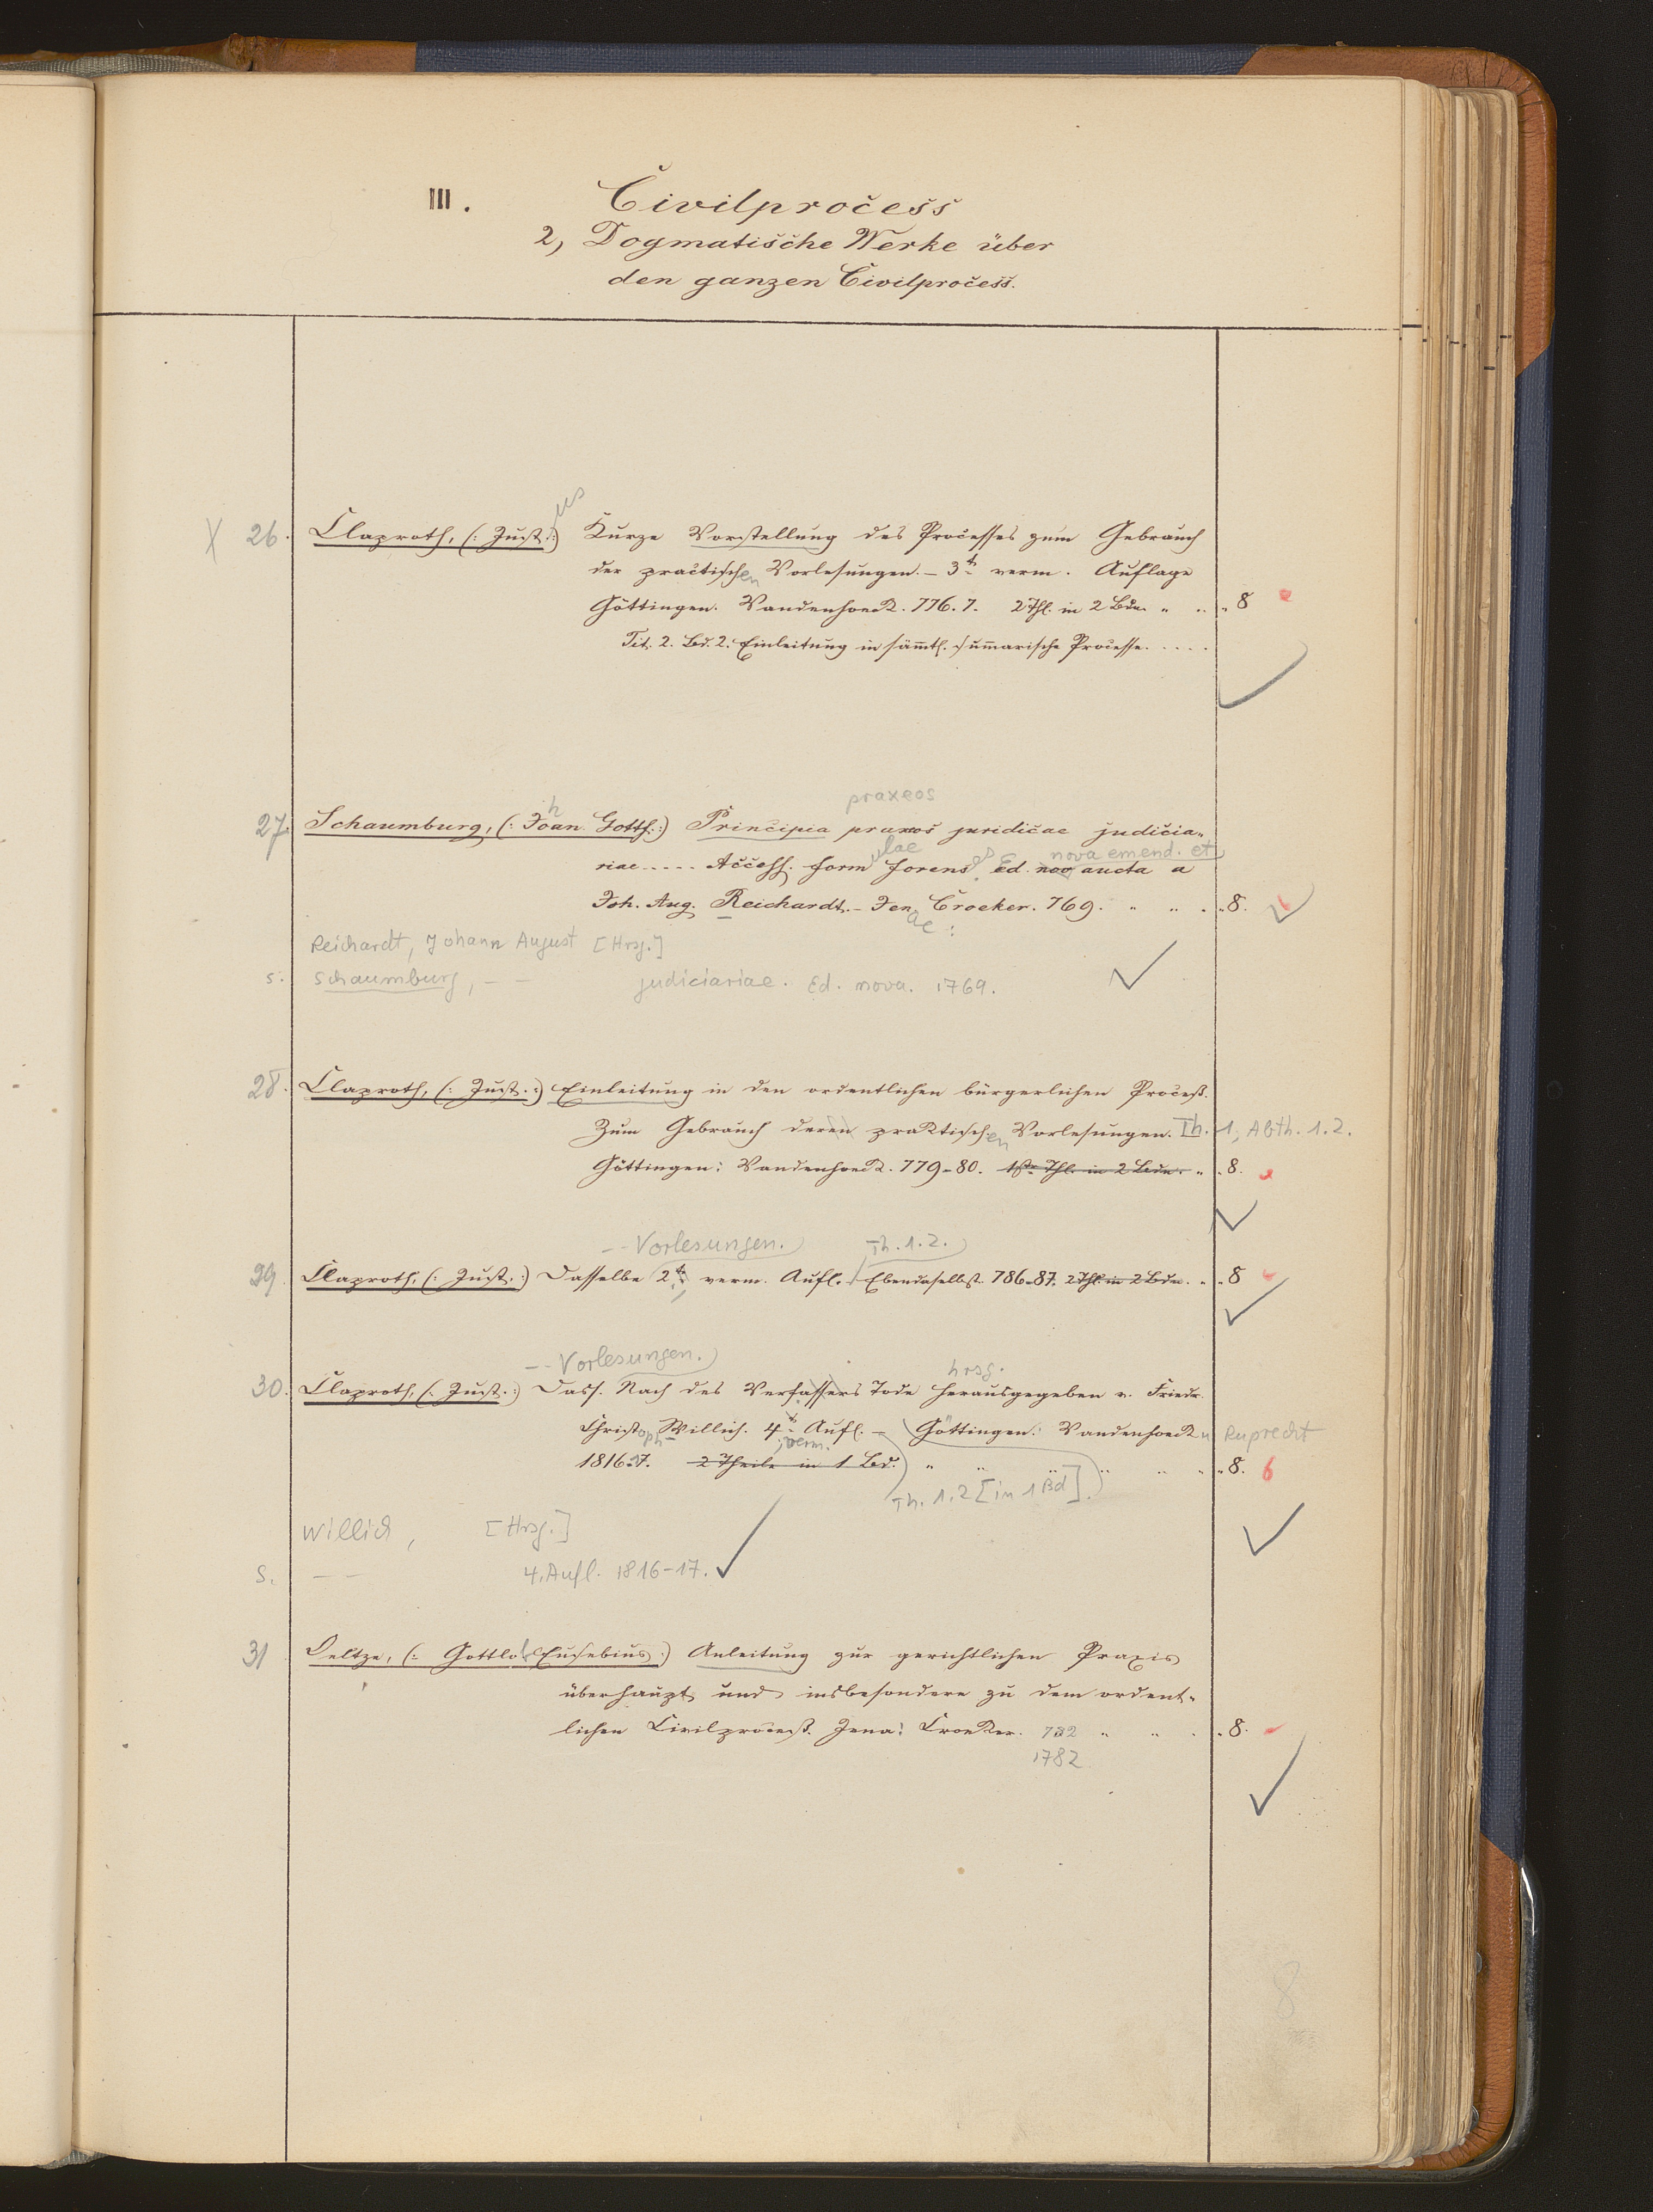 III. Civilprocess
2, Dogmatische Werke über
den ganzen Civilprocess.
us
X 26. Claproth, (: Just :) Kurze Vorstellung des Processes zum Gebrauch
der practischen Vorlesungen. – 3t verm. Auflage
Göttingen. Vandenhoeck. 776. 7. 2 Thl. in 2 Bdn. " " " 8
Tit. 2. Bd. 2. Einleitung in sämtl. summarische Processe. . . . .
praxeos
27. Schaumburg, (: Joan. Gottf. :) Principia praxos juridicae judicia-
h
ulae es nova emend. et
riae ..... Access. form forens Ed. nov aucta a
Joh. Aug. Reichardt. – Jenae: Croeker. 769. " " " 8.
Reichardt, Johann August [Hrsg.]
s. Schaumburg, – – judiciariae. Ed. nova. 1769.
28. Claproth, (: Just. :) Einleitung in den ordentlichen bürgerlichen Proceß.
Zum Gebrauch deren praktischen Vorlesungen. Th. 1, Abth. 1.2.
Göttingen: Vandenhoeck. 779-80. 1ste Thl. in 2 Bdn. " " 8.
-- Vorlesungen. Th. 1.2.
29. Claproth, (: Just. :) Dasselbe 2t verm. Aufl. Ebendaselbst. 786-87. 2 Thl. in 2 Bdn. " " 8
-- Vorlesungen. hrsg.
30. Claproth, (: Just. :) Dass. Nach des Verfassers Tode herausgegeben v. Friedr.
Christoph Willich. 4t Aufl. – Göttingen: Vandenhoeck u Ruprecht
verm.
1816.17. 2 Theile in 1 Bd. " " " " " " 8. 6
Th. 1.2 [in 1 Bd].
Willich, [Hrsg.]
s. – – 4. Aufl. 1816-17.
31 Oeltze, (: Gottlob Eusebius :) Anleitung zur gerichtlichen Praxis
überhaupt und insbesondere zu dem ordent-
lichen Civilproceß. Jena: Croeker. 782 " " " 8.
1782
8